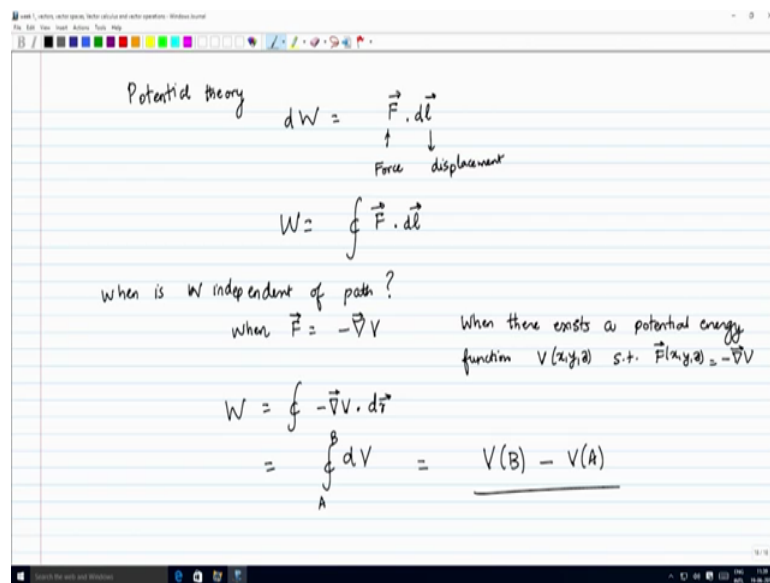 week 1_ vectors, vector spaces, Vector calculus and vector operations - Windows Journal
File Edit View Insert Actions Tools Help
Potential theory
dW = F⃗ . dl⃗
↑ ↓
Force displacement
W = ∮ F⃗ . dl⃗
When is W independent of path?
When F⃗ = -∇⃗V
When there exists a potential energy
function V(x,y,z) s.t. F⃗(x,y,z) = -∇⃗V
W = ∮ -∇⃗V . dr⃗
= ∮ᴬᴮ dV = V(B) - V(A)
16/16
Search the web and Windows
ENG